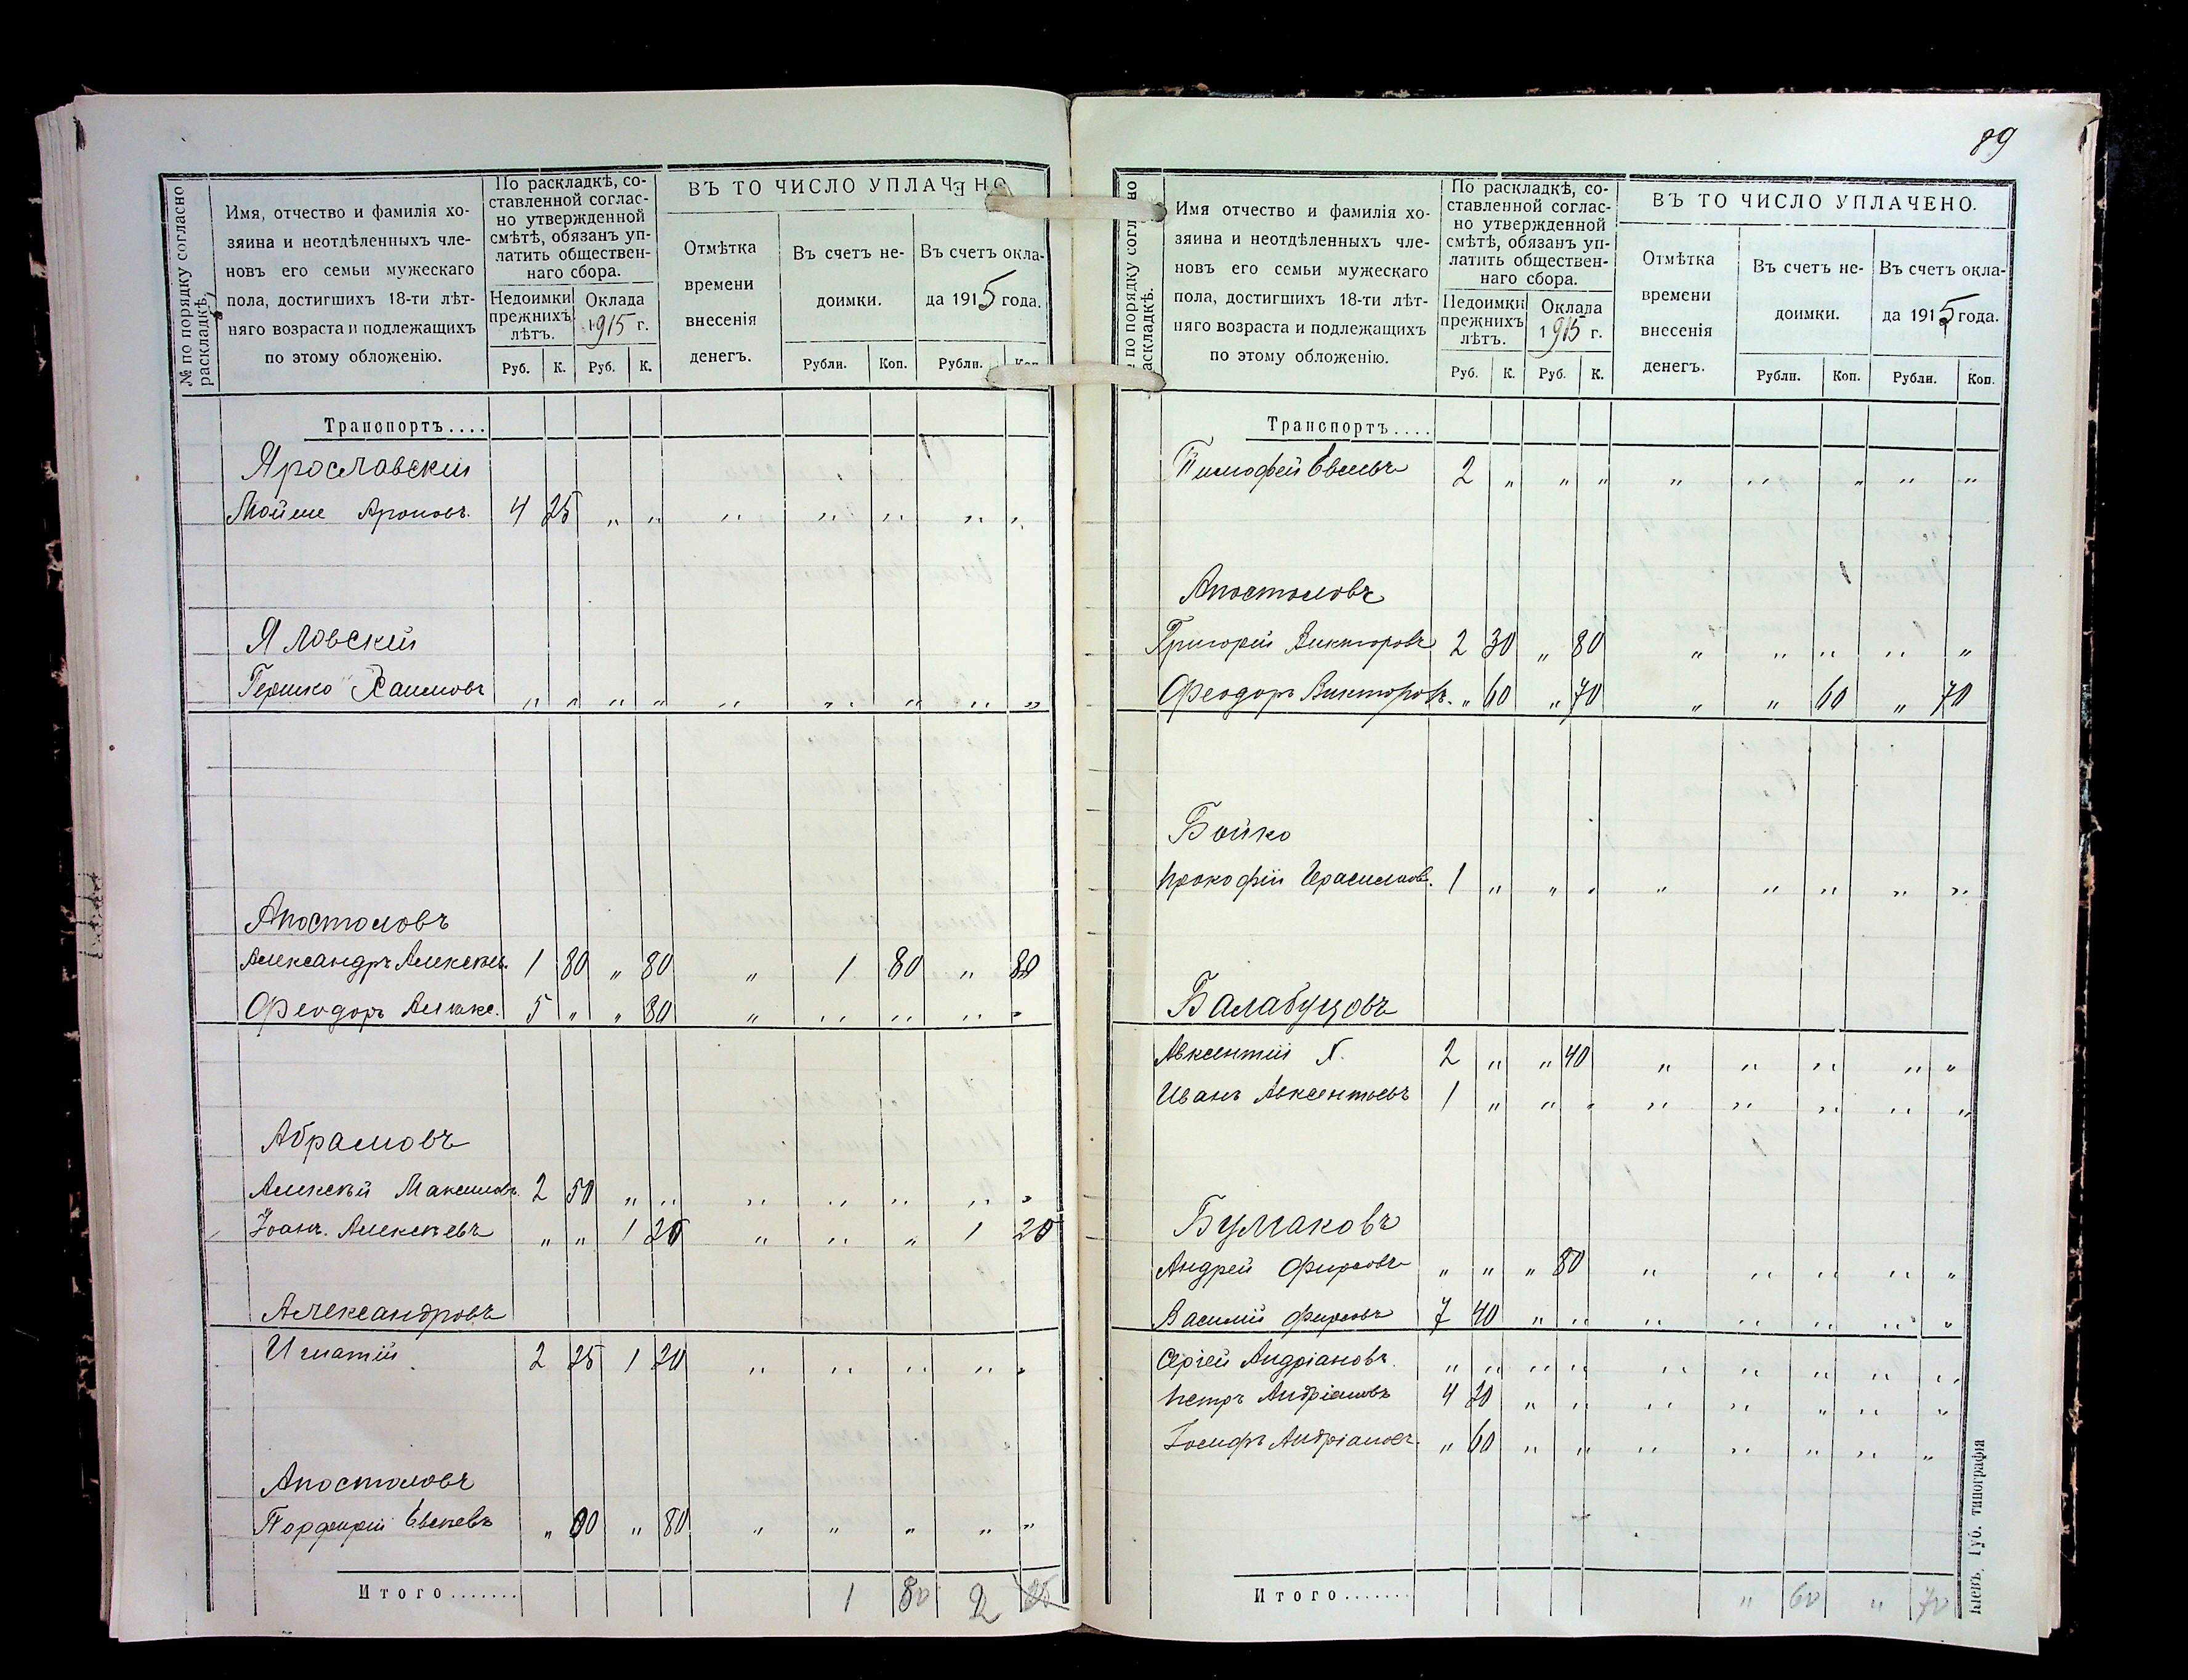 № по порядку согласно раскладкѣ.
Имя, отчество и фамилія хо-
зяина и неотдѣленныхъ чле-
новъ его семьи мужескаго
пола, достигшихъ 18-ти лѣт-
няго возраста и подлежащихъ
по этому обложенію.
По раскладкѣ, со-
ставленной соглас-
но утвержденной
смѣтѣ, обязанъ уп-
латить обществен-
наго сбора.
Недоимки прежнихъ лѣтъ.
Оклада 1915 г.
Руб. К. Руб. К.
ВЪ ТО ЧИСЛО УПЛАЧЕНО
Отмѣтка времени внесенія денегъ.
Въ счетъ не-
доимки.
Въ счетъ окла-
да 1915 года.
Рубли. Коп. Рубли. Коп.
Транспортъ....
Ярославскій
Мойше Ароновъ. 4 25 " " " " " " "
Яловскій
Гершко Хаимовъ " " " " " " " " "
Апостоловъ
Александръ Алексѣев. 1 80 " 80 " 1 80 " 80
Феодоръ Алексѣ. 5 " " 80 " " " " "
Абрамовъ
Алексѣй Максимовъ. 2 50 " " " " " " "
Іоанъ. Алексѣевъ " " 1 20 " " " 1 20
Александровъ
Игнатій 2 25 1 20 " " " " "
Апостоловъ
Порфирій Евсѣевъ " 90 " 80 " " " " "
Итого....... 1 80 2
89
№ по порядку согласно раскладкѣ.
Имя отчество и фамилія хо-
зяина и неотдѣленныхъ чле-
новъ его семьи мужескаго
пола, достигшихъ 18-ти лѣт-
няго возраста и подлежащихъ
по этому обложенію.
По раскладкѣ, со-
ставленной соглас-
но утвержденной
смѣтѣ, обязанъ уп-
латить обществен-
наго сбора.
Недоимки прежнихъ лѣтъ.
Оклада 1915 г.
Руб. К. Руб. К.
ВЪ ТО ЧИСЛО УПЛАЧЕНО.
Отмѣтка времени внесенія денегъ.
Въ счетъ не-
доимки.
Въ счетъ окла-
да 1915 года.
Рубли. Коп. Рубли. Коп.
Транспортъ....
Тимофей Евсѣевъ 2 " " " " " " " "
Апостоловъ
Григорій Викторовъ 2 30 " 80 " " " " "
Феодоръ Викторовъ. " 60 " 70 " " 60 " 70
Бойко
Прокофій Герасимов. 1 " " " " " " " "
Балабуцовъ
Авксентій 2 " " 40 " " " " "
Иванъ Авксентьевъ 1 " " " " " " " "
Булгаковъ
Андрей Фирсовъ " " " 80 " " " " "
Василій Фирсовъ 7 40 " " " " " " "
Сергѣй Андріановъ. " " " " " " " " "
Петръ Андріановъ 4 20 " " " " " " "
Іосифъ Андріановъ. " 60 " " " " " " "
Итого....... " 60 " 70
Кіевъ, Губ. типографія